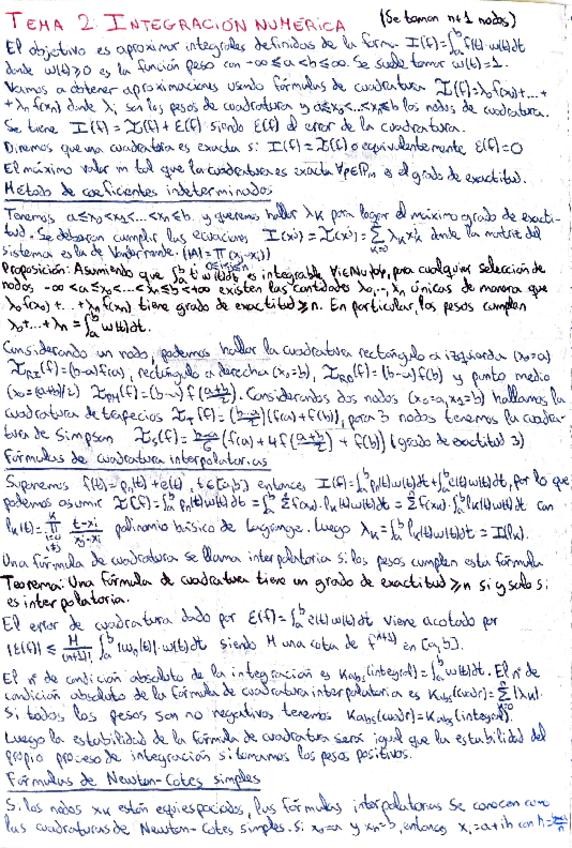 TEMA 2: INTEGRACIÓN NUMÉRICA (Se toman n+1 nodos)
El objetivo es aproximar integrales definidas de la forma I(f)=∫_a^b f(t)·w(t)dt
donde w(t)≥0 es la función peso con -∞≤a<b≤∞. Se suele tomar w(t)=1.
Vamos a obtener aproximaciones usando fórmulas de cuadratura Ĩ(f)=λ₀f(x₀)+...+
+λₙf(xₙ) donde λᵢ son los pesos de cuadratura y a≤x₀<...<xₙ≤b los nodos de cuadratura.
Se tiene I(f)=Ĩ(f)+E(f) siendo E(f) el error de la cuadratura.
Diremos que una cuadratura es exacta si I(f)=Ĩ(f) o equivalentemente E(f)=0
El máximo valor m tal que la cuadratura es exacta ∀p∈ℙₘ es el grado de exactitud.
Método de coeficientes indeterminados
Tenemos a≤x₀<x₁<...<xₙ≤b y queremos hallar λₖ para lograr el máximo grado de exacti-
tud. Se deberán cumplir las ecuaciones I(xʲ)=Ĩ(xʲ)=∑_{k=0}^n λₖxₖʲ donde la matriz del
sistema es la de Vandermonde. (|A|=∏(xⱼ-xᵢ))
Proposición: Asumiendo que ∫_a^b tⁱ w(t)dt es integrable ∀i∈ℕ∪{0}, para cualquier selección de
nodos -∞<a≤x₀<...<xₙ≤b<+∞ existen las cantidades λ₀,...,λₙ únicas de manera que
λ₀f(x₀)+...+λₙf(xₙ) tiene grado de exactitud ≥n. En particular, los pesos cumplen
λ₀+...+λₙ=∫_a^b w(t)dt.
Considerando un nodo, podemos hallar la cuadratura rectángulo a izquierda (x₀=a)
Ĩ_RI(f)=(b-a)f(a), rectángulo a derecha (x₀=b), Ĩ_RD(f)=(b-a)f(b) y punto medio
(x₀=(a+b)/2) Ĩ_PM(f)=(b-a)f((a+b)/2). Considerando dos nodos (x₀=a, x₁=b) hallamos la
cuadratura de trapecios Ĩ_T(f)=((b-a)/2)(f(a)+f(b)), para 3 nodos tenemos la cuadra-
tura de Simpson Ĩ_S(f)=(b-a)/6 (f(a)+4f((a+b)/2)+f(b)) (grado de exactitud 3)
Fórmulas de cuadratura interpolatorias
Suponemos f(t)=pₙ(t)+e(t), t∈[a,b] entonces I(f)=∫_a^b pₙ(t)w(t)dt+∫_a^b e(t)w(t)dt, por lo que
podemos asumir Ĩ(f)=∫_a^b pₙ(t)w(t)dt=∫_a^b ∑f(xₖ)·lₖ(t)w(t)dt=∑f(xₖ)·∫_a^b lₖ(t)w(t)dt con
lₖ(t)=∏ (t-xᵢ)/(xⱼ-xᵢ) polinomio básico de Lagrange. Luego λₖ=∫_a^b lₖ(t)w(t)dt=I(lₖ).
Una fórmula de cuadratura se llama interpolatoria si los pesos cumplen esta fórmula
Teorema: Una fórmula de cuadratura tiene un grado de exactitud ≥n si y solo si
es interpolatoria.
El error de cuadratura dado por E(f)=∫_a^b e(t)w(t)dt viene acotado por
|E(f)|≤ M/(n+1)! ∫_a^b |wₙ(t)|·w(t)dt siendo M una cota de f^(n+1) en [a,b].
El nº de condición absoluto de la integración es K_abs(integral)=∫_a^b w(t)dt. El nº de
condición absoluto de la fórmula de cuadratura interpolatoria es K_abs(cuadr)=∑_{k=0}^n |λₖ|.
Si todos los pesos son no negativos tenemos K_abs(cuadr)=K_abs(integral).
Luego la estabilidad de la fórmula de cuadratura será igual que la estabilidad del
propio proceso de integración si tomamos los pesos positivos.
Fórmulas de Newton-Cotes simples
Si los nodos xₖ están equiespaciados, las fórmulas interpolatorias se conocen como
las cuadraturas de Newton-Cotes simples. Si x₀=a y xₙ=b, entonces xᵢ=a+ih con h=(b-a)/n